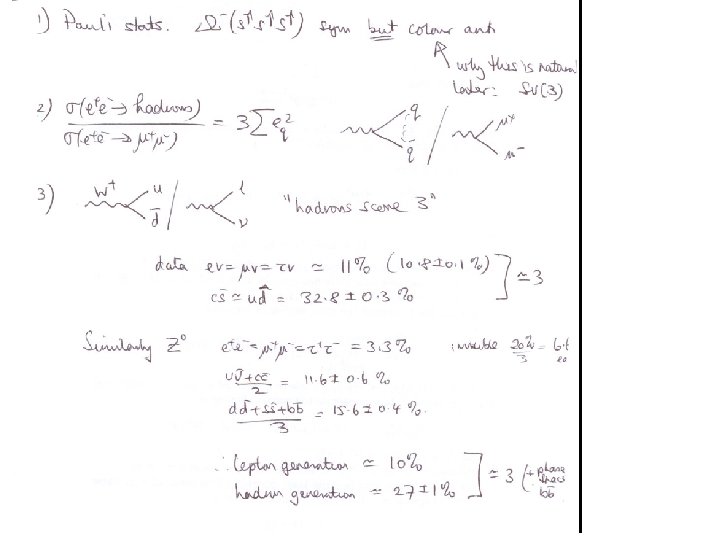 1) Pauli stats. Ω⁻(s↑s↑s↑) sym but colour anti
why this is natural
later: SU(3)
2) σ(e⁺e⁻→hadrons) / σ(e⁺e⁻→μ⁺μ⁻) = 3∑e_q² q q̄ / μ⁺ μ⁻
3) W⁺ u d̄ / l ν "hadrons score 3"
data eν=μν=τν ≃ 11% (10.8±0.1%)
cs̄ ≃ ud̄ = 32.8 ± 0.3 % ] ≃ 3
Similarly Z⁰ e⁺e⁻=μ⁺μ⁻=τ⁺τ⁻ = 3.3% invisible 20%/3 = 6.
uū+cc̄ / 2 = 11.6 ± 0.6 %
dd̄+ss̄+bb̄ / 3 = 15.6 ± 0.4 %.
∴ lepton generation ≃ 10%
hadron generation ≃ 27±1% ] ≃ 3 (+phase space bb̄